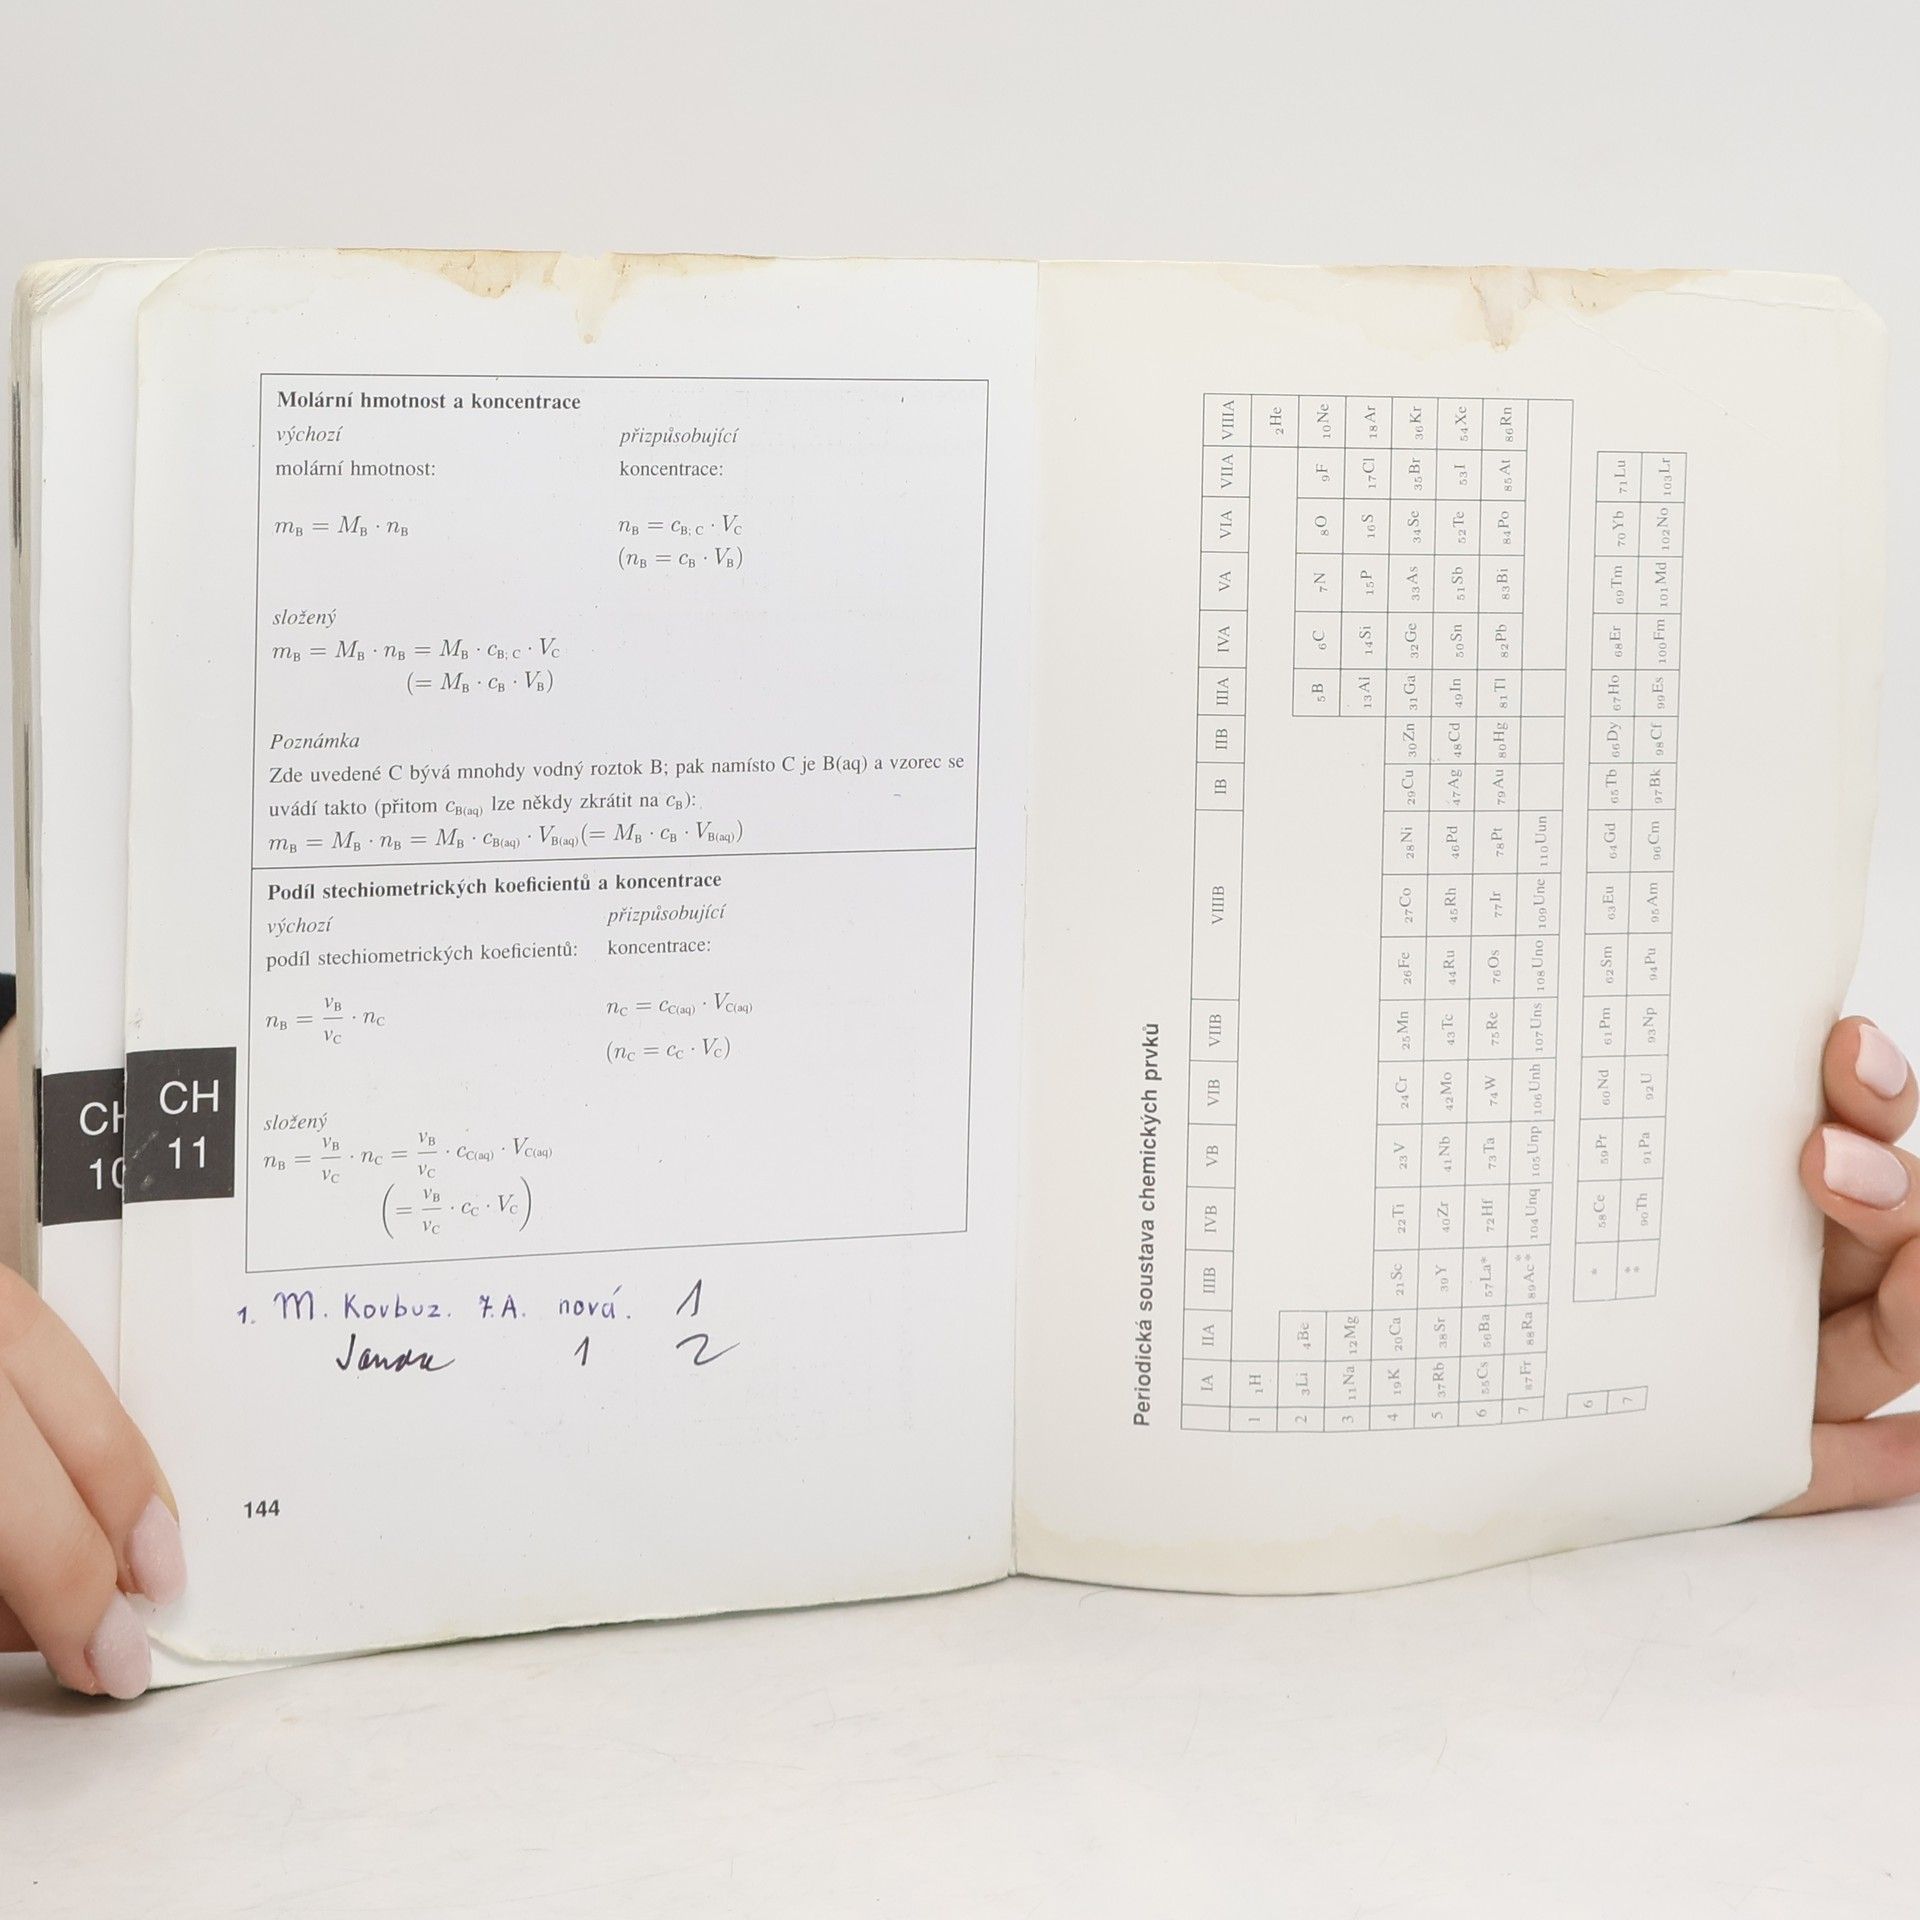 Molární hmotnost a koncentrace
výchozí přizpůsobující
molární hmotnost: koncentrace:
m_B = M_B · n_B n_B = c_B; C · V_C
(n_B = c_B · V_B)
složený
m_B = M_B · n_B = M_B · c_B; C · V_C
(= M_B · c_B · V_B)
Poznámka
Zde uvedené C bývá mnohdy vodný roztok B; pak namísto C je B(aq) a vzorec se
uvádí takto (přitom c_B(aq) lze někdy zkrátit na c_B):
m_B = M_B · n_B = M_B · c_B(aq) · V_B(aq) (= M_B · c_B · V_B(aq))
Podíl stechiometrických koeficientů a koncentrace
výchozí přizpůsobující
podíl stechiometrických koeficientů: koncentrace:
n_B = ν_B/ν_C · n_C n_C = c_C(aq) · V_C(aq)
(n_C = c_C · V_C)
složený
n_B = ν_B/ν_C · n_C = ν_B/ν_C · c_C(aq) · V_C(aq)
(= ν_B/ν_C · c_C · V_C)
CH
10
CH
11
1. M. Korbuz. 7.A. nová. 1
1 2
144
Periodická soustava chemických prvků
IA IIA IIIB IVB VB VIB VIIB VIIIB IB IIB IIIA IVA VA VIA VIIA VIIIA
1 1H 2He
2 3Li 4Be 5B 6C 7N 8O 9F 10Ne
3 11Na 12Mg 13Al 14Si 15P 16S 17Cl 18Ar
4 19K 20Ca 21Sc 22Ti 23V 24Cr 25Mn 26Fe 27Co 28Ni 29Cu 30Zn 31Ga 32Ge 33As 34Se 35Br 36Kr
5 37Rb 38Sr 39Y 40Zr 41Nb 42Mo 43Tc 44Ru 45Rh 46Pd 47Ag 48Cd 49In 50Sn 51Sb 52Te 53I 54Xe
6 55Cs 56Ba 57La* 72Hf 73Ta 74W 75Re 76Os 77Ir 78Pt 79Au 80Hg 81Tl 82Pb 83Bi 84Po 85At 86Rn
7 87Fr 88Ra 89Ac** 104Unq 105Unp 106Unh 107Uns 108Uno 109Une 110Uun
6 * 58Ce 59Pr 60Nd 61Pm 62Sm 63Eu 64Gd 65Tb 66Dy 67Ho 68Er 69Tm 70Yb 71Lu
7 ** 90Th 91Pa 92U 93Np 94Pu 95Am 96Cm 97Bk 98Cf 99Es 100Fm 101Md 102No 103Lr